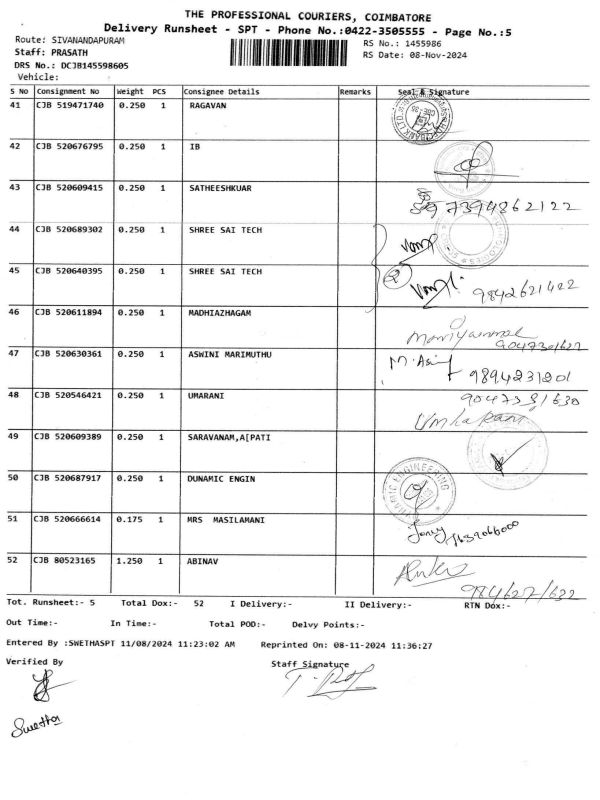 THE PROFESSIONAL COURIERS, COIMBATORE
Delivery Runsheet - SPT - Phone No.:0422-3505555 - Page No.:5
Route: SIVANANDAPURAM RS No.: 1455986
Staff: PRASATH RS Date: 08-Nov-2024
DRS No.: DCJB145598605
Vehicle:
S No Consignment No Weight PCS Consignee Details Remarks Seal & Signature
41 CJB 519471740 0.250 1 RAGAVAN
42 CJB 520676795 0.250 1 IB
43 CJB 520609415 0.250 1 SATHEESHKUAR 7394862122
44 CJB 520689302 0.250 1 SHREE SAI TECH
45 CJB 520640395 0.250 1 SHREE SAI TECH 9842621422
46 CJB 520611894 0.250 1 MADHIAZHAGAM
47 CJB 520630361 0.250 1 ASWINI MARIMUTHU 9894231201
48 CJB 520546421 0.250 1 UMARANI
49 CJB 520609389 0.250 1 SARAVANAM,A[PATI
50 CJB 520687917 0.250 1 DUNAMIC ENGIN
51 CJB 520666614 0.175 1 MRS MASILAMANI
52 CJB 80523165 1.250 1 ABINAV
Tot. Runsheet:- 5 Total Dox:- 52 I Delivery:- II Delivery:- RTN Dox:-
Out Time:- In Time:- Total POD:- Delvy Points:-
Entered By :SWETHASPT 11/08/2024 11:23:02 AM Reprinted On: 08-11-2024 11:36:27
Verified By Staff Signature
Swetha